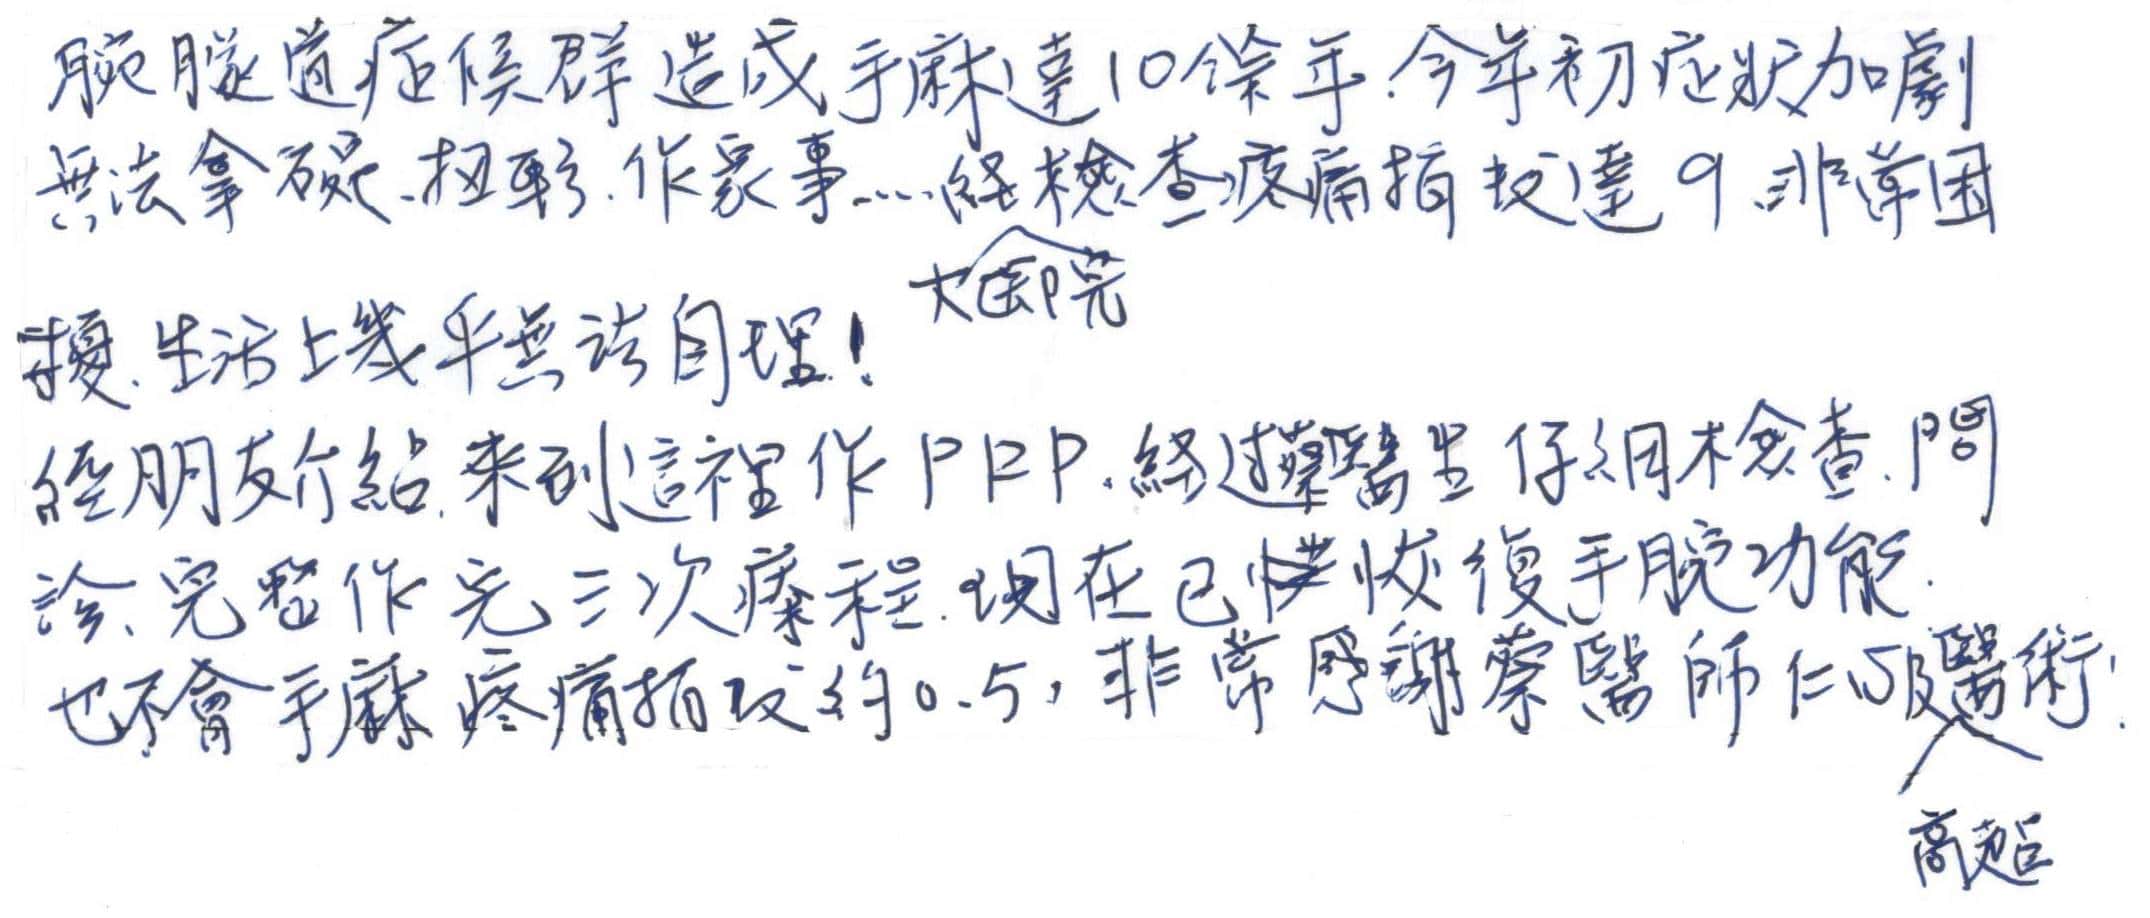 腕隧道症候群造成手麻達10餘年.今年初症狀加劇
無法拿碗、扭轉.作家事....經檢查疼痛指數達9.非常困
大醫院
擾.生活上幾乎無法自理!
經朋友介紹.來到這裡作PRP.經過蔡醫生仔細檢查.問
診、完整作完三次療程.現在已恢復手腕功能.
也不會手麻疼痛指數約0.5,非常感謝蔡醫師仁心及醫術.
高超